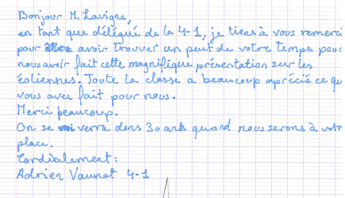 Bonjour M. Lavigne,
en tant que délégué de la 4-1, je tiens à vous remerci
pour avoir trouver un peut de votre temps pour
nous avoir fait cette magnifique présentation sur les
éoliennes. Toute la classe a beaucoup aprécié ce que
vous avez fait pour nous.
Merci beaucoup.
On se verra dans 30 ans quand nous serons à votre
place.
Cordialement :
Adrien Vaunat 4-1